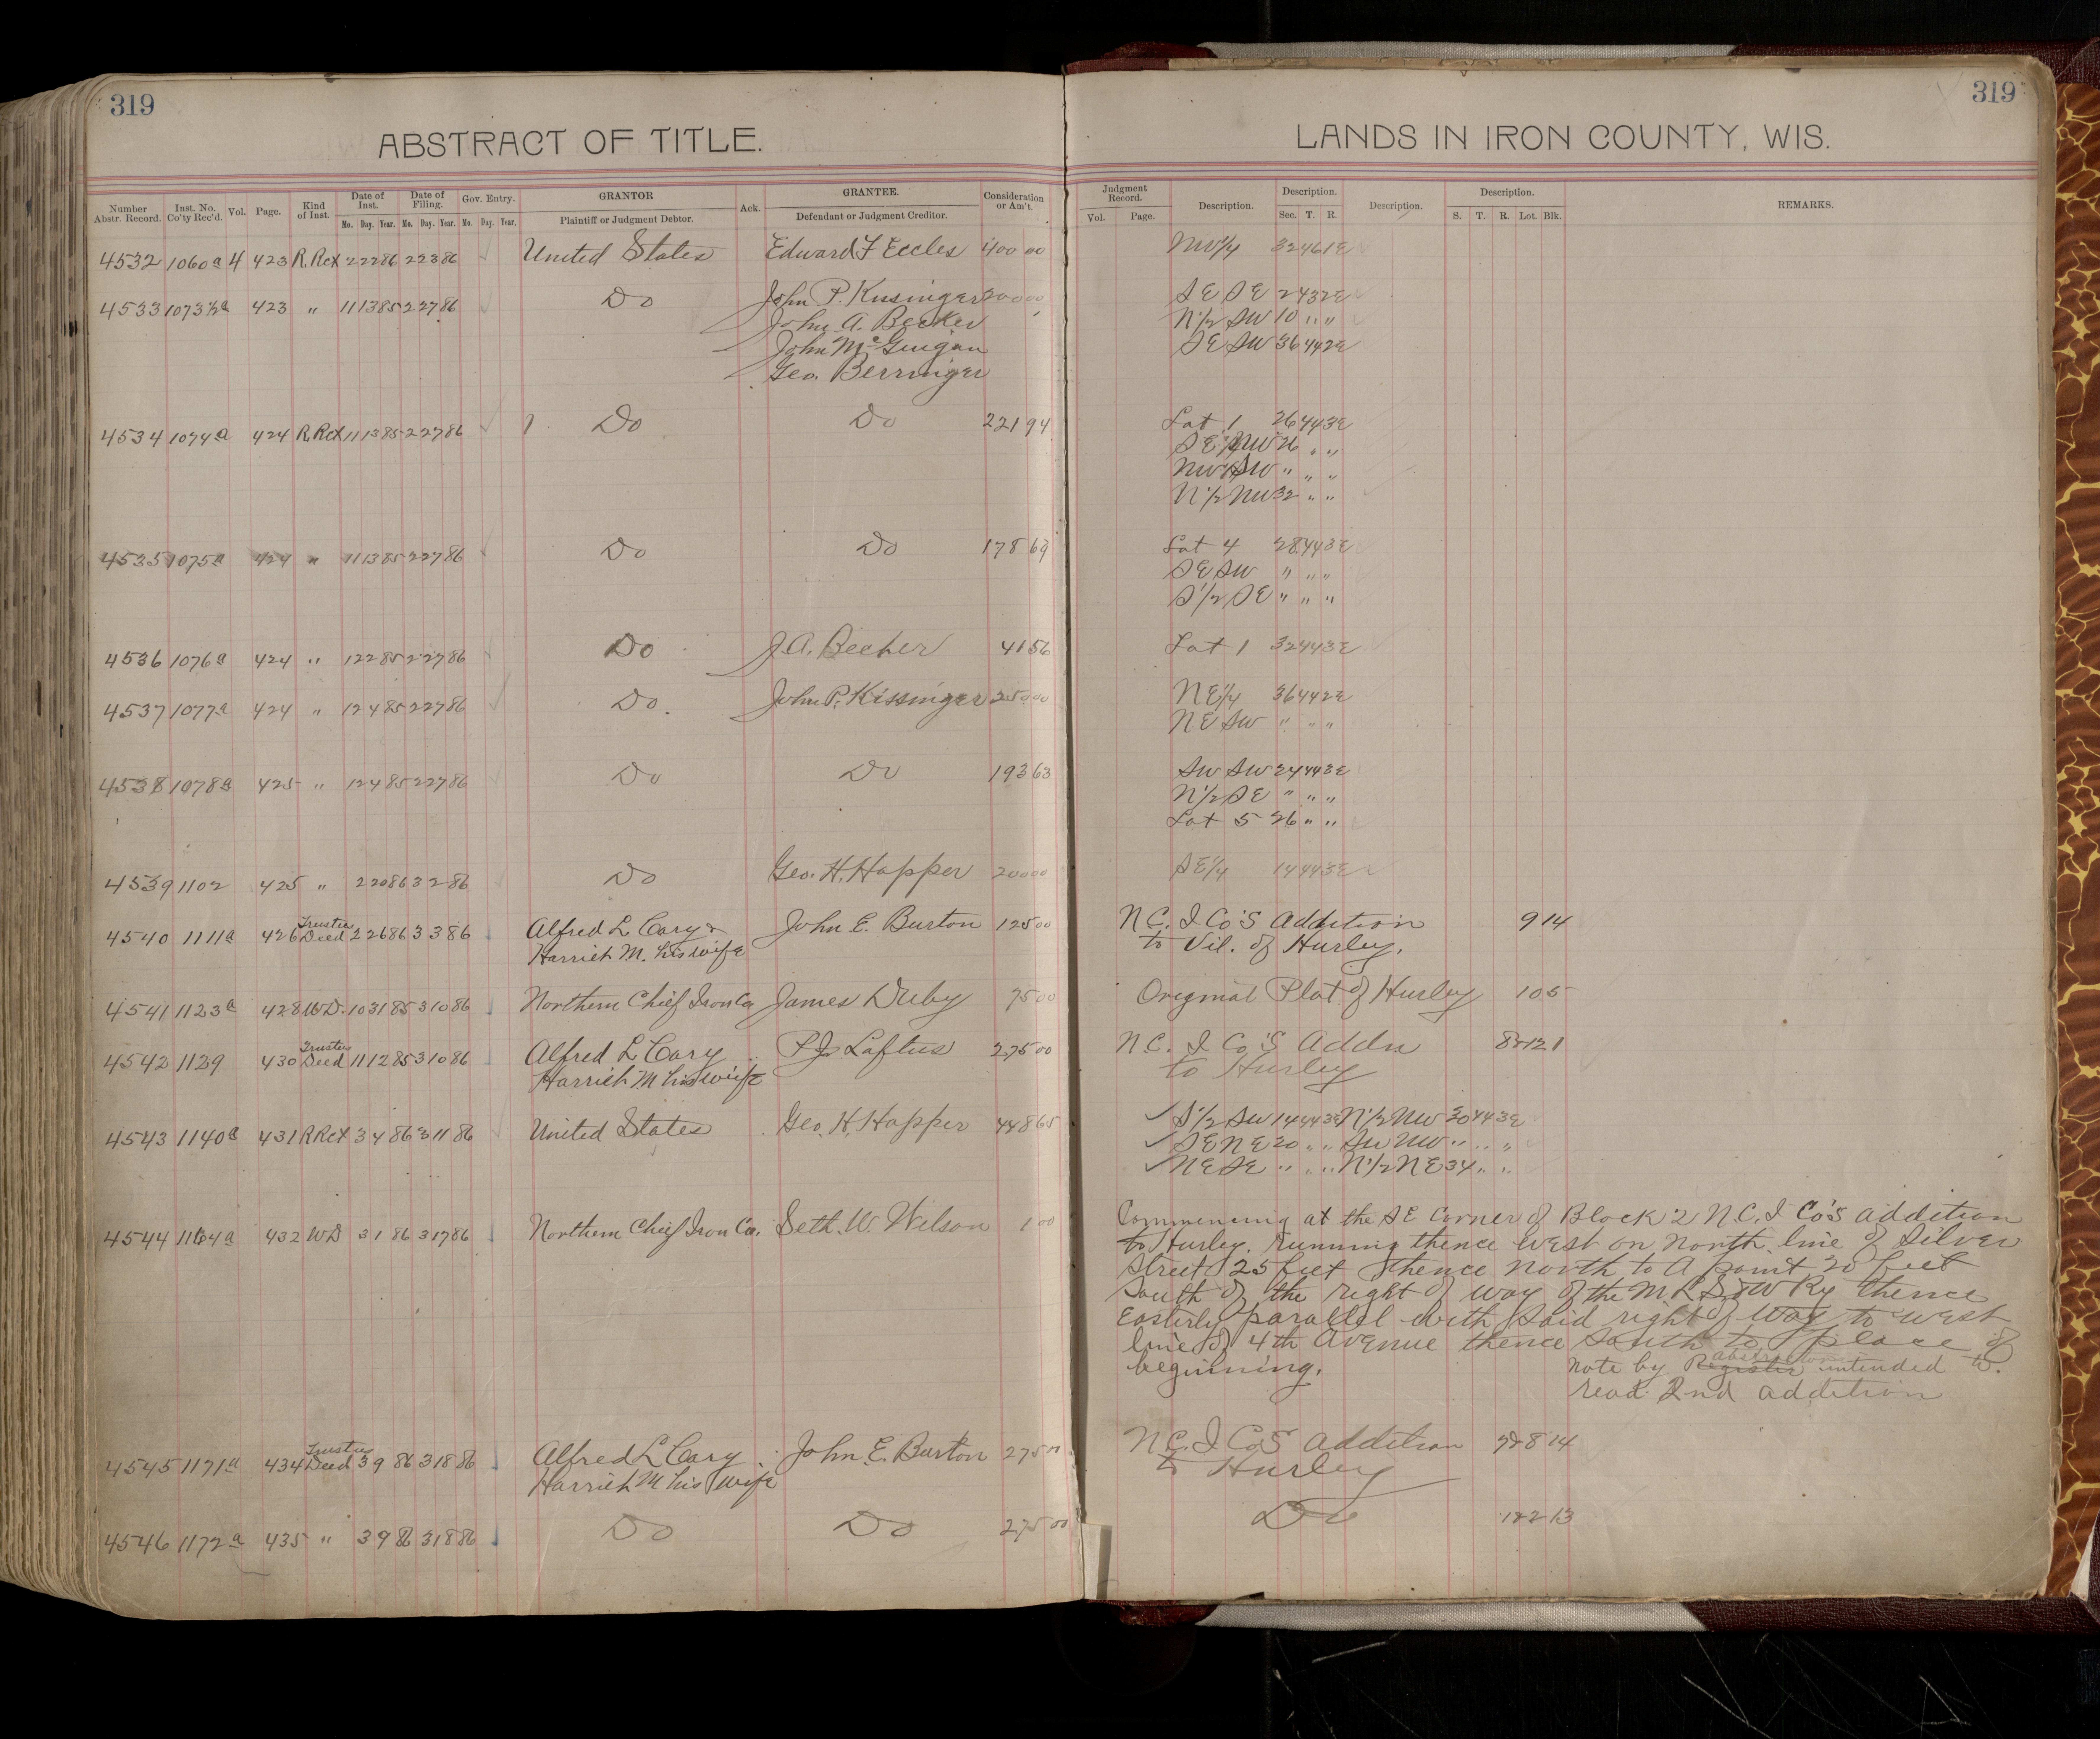 319
319
ABSTRACT OF TITLE.
LANDS IN IRON COUNTY, WIS.
Number Abstr. Record. Inst. No. Co'ty Rec'd. Vol. Page. Kind of Inst. Date of Inst. Mo. Day. Year. Date of Filing. Mo. Day. Year. Gov. Entry. Mo. Day. Year. GRANTOR Plaintiff or Judgment Debtor. Ack. GRANTEE. Defendant or Judgment Creditor. Consideration or Am't.
Judgment Record. Vol. Page. Description. Description. Sec. T. R. Description. Description. S. T. R. Lot. Blk. REMARKS.
4532 1060a 4 423 R. Rct 2 2 86 2 23 86 United States Edward F Eccles 400 00 NW1/4 32 46 1E
4533 1073½a 423 " 11 13 85 2 27 86 Do John P. Kissinger 200 00 SE SE 2 43 2E
John A. Becker N1/2 SW 10 " "
John McGuigan SE SW 36 44 2E
Geo. Berringer
4534 1074a 424 R. Rct 11 13 85 2 27 86 Do Do 221 94 Lot 1 26 44 3E
SE1/4 NW 26 " "
NW1/4 SW " " "
N1/2 NW 32 " "
4535 1075a 424 " 11 13 85 2 27 86 Do Do 178 69 Lot 4 28 44 3E
SE SW " " "
S1/2 SE " " "
4536 1076a 424 " 12 2 85 2 27 86 Do J. A. Becker 41 56 Lot 1 32 44 3E
4537 1077a 424 " 12 4 85 2 27 86 Do. John P. Kissinger 250 00 NE1/4 36 44 2E
NE SW " " "
4538 1078a 425 " 12 4 85 2 27 86 Do Do 193 63 SW SW 24 44 3E
N1/2 SE " " "
Lot 5 26 " "
4539 1102 425 " 2 20 86 3 2 86 Do Geo. H. Hopper 200 00 SE1/4 14 44 3E
4540 1111a 426 Trustees Deed 2 26 86 3 3 86 Alfred L Cary & John E. Burton 125 00 N.C. I Co'S Addition 9 14
Harriet M. his wife to Vil. of Hurley.
4541 1123a 428 W.D. 10 31 85 3 10 86 Northern Chief Iron Co James Duby 75 00 Original Plat of Hurley 10 5
4542 1129 430 Trustees Deed 11 12 85 3 10 86 Alfred L Cary P J Loftus 275 00 N.C. I Co'S Addn 8 & 12 1
Harriet M his wife to Hurley
4543 1140a 431 R Rct 3 4 86 3 11 86 United States Geo. H. Hopper 448 65 S1/2 SW 14 44 3E N1/2 NW 30 44 3E
SE NE 20 " " SW NW " " "
NE SE " " " N1/2 NE 34 " "
4544 1164a 432 WD 3 1 86 3 17 86 Northern Chief Iron Co. Seth. W. Wilson 1 00 Commencing at the SE Corner of Block 2 N.C. I Co's addition
to Hurley. running thence West on North line of Silver
Street 125 feet thence North to a point 20 feet
South of the right of way of the M L S & W Ry thence
Easterly parallel with said right of way to west
line of 4th Avenue thence South to place of
beginning. Note by abstractor intended to
read 2nd addition
4545 1171a 434 Trustees Deed 3 9 86 3 18 86 Alfred L Cary John E. Burton 275 00 N.C. I Co's Addition 7 & 8 14
Harriet M his wife to Hurley
4546 1172a 435 " 3 9 86 3 18 86 Do Do 275 00 Do 1 & 2 13